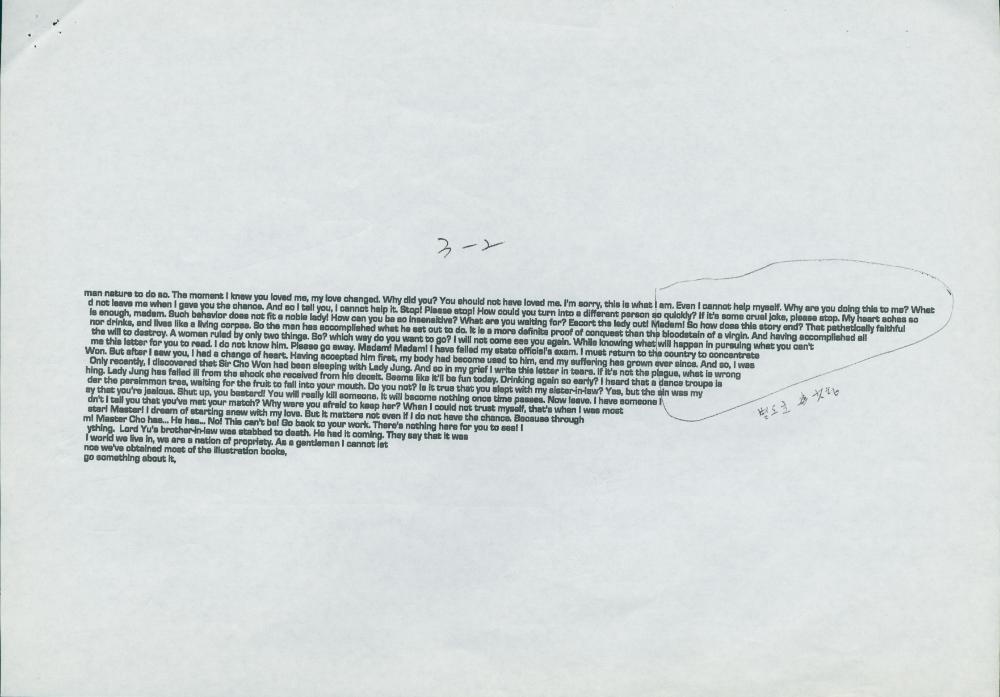 3-2
man nature to do so. The moment I knew you loved me, my love changed. Why did you? You should not have loved me. I'm sorry, this is what I am. Even I cannot help myself. Why are you doing this to me? What
d not leave me when I gave you the chance. And so I tell you, I cannot help it. Stop! Please stop! How could you turn into a different person so quickly? If it's some cruel joke, please stop. My heart aches so
is enough, madam. Such behavior does not fit a noble lady! How can you be so insensitive? What are you waiting for? Escort the lady out! Madam! So how does this story end? That pathetically faithful
nor drinks, and lives like a living corpse. So the man has accomplished what he set out to do. It is a more definite proof of conquest than the bloodstain of a virgin. And having accomplished all
the will to destroy. A woman ruled by only two things. So? which way do you want to go? I will not come see you again. While knowing what will happen in pursuing what you can't
me this letter for you to read. I do not know him. Please go away. Madam! Madam! I have failed my state official's exam. I must return to the country to concentrate
Won. But after I saw you, I had a change of heart. Having accepted him first, my body had become used to him, and my suffering has grown ever since. And so, I was
Only recently, I discovered that Sir Cho Won had been sleeping with Lady Jung. And so in my grief I write this letter in tears. If it's not the plague, what is wrong
hing. Lady Jung has fallen ill from the shock she received from his deceit. Seems like it'll be fun today. Drinking again so early? I heard that a dance troupe is
der the persimmon tree, waiting for the fruit to fall into your mouth. Do you not? Is it true that you slept with my sister-in-law? Yes, but the sin was my
ay that you're jealous. Shut up, you bastard! You will really kill someone. It will become nothing once time passes. Now leave. I have someone I
dn't I tell you that you've met your match? Why were you afraid to keep her? When I could not trust myself, that's when I was most
ster! Master! I dream of starting anew with my love. But it matters not even if I do not have the chance. Because through
m! Master Cho has... He has... No! This can't be! Go back to your work. There's nothing here for you to see! I
ything. Lord Yu's brother-in-law was stabbed to death. He had it coming. They say that it was
l world we live in, we are a nation of propriety. As a gentleman I cannot let
nce we've obtained most of the illustration books,
go something about it,
별도로